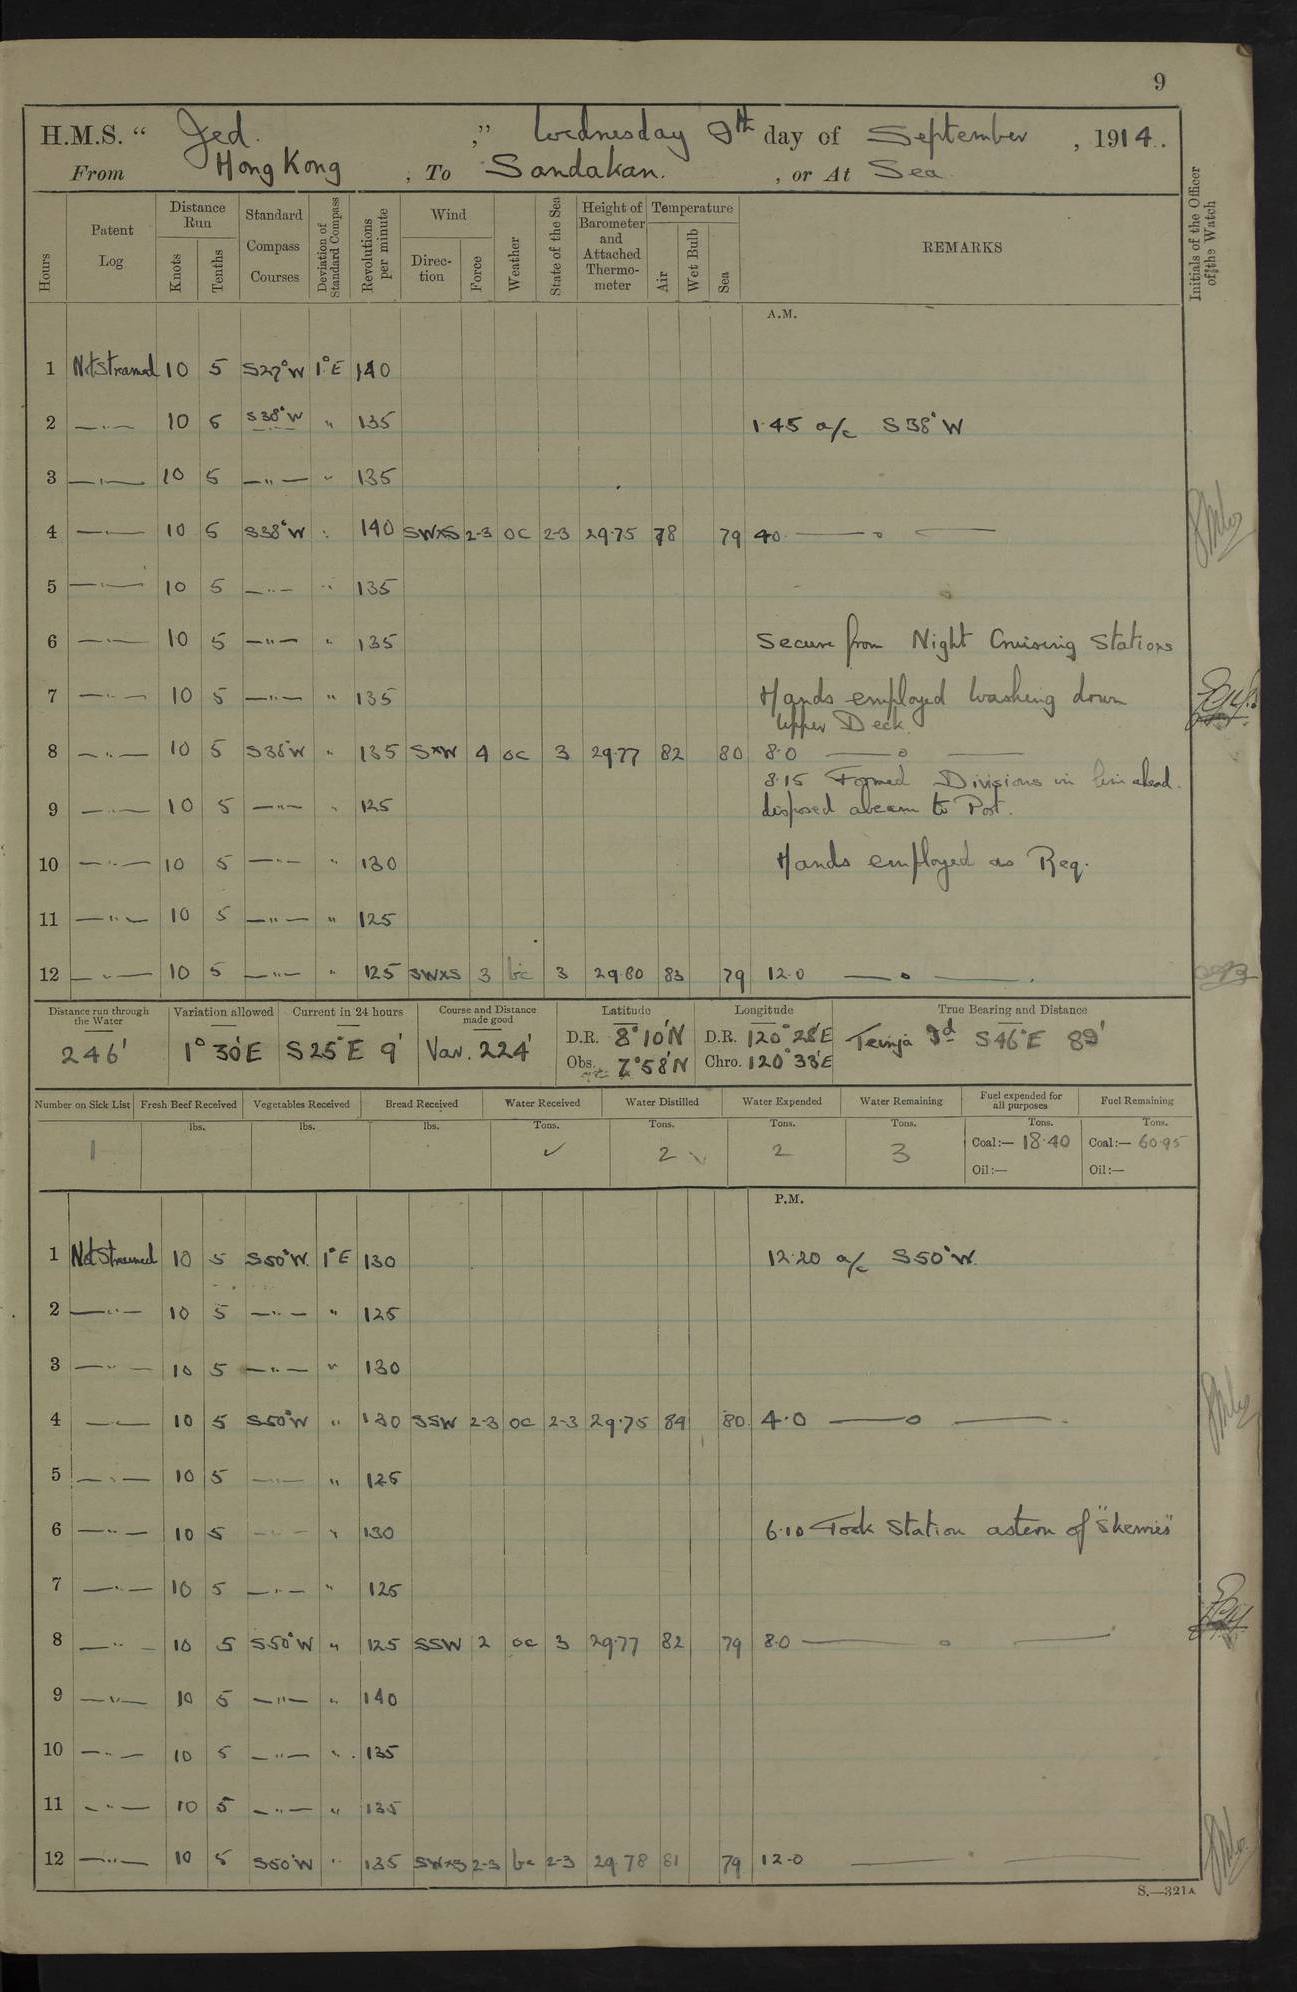 9
H.M.S. “ Jed. ,” Wednesday 9th day of September , 1914.
From Hong Kong , To Sandakan. , or At Sea
Hours Patent Log Distance Run Knots Tenths Standard Compass Courses Deviation of Standard Compass Revolutions per minute Wind Direction Force Weather State of the Sea Height of Barometer and Attached Thermometer Temperature Air Wet Bulb Sea REMARKS Initials of the Officer of the Watch
A.M.
1 Not Streamed 10 5 S27°W 1°E 140
2 —..— 10 5 S38°W " 135 1.45 a/c S38°W
3 —..— 10 5 —"— " 135
4 —..— 10 5 S38°W " 140 SWxS 2-3 oc 2-3 29.75 78 79 40 —— o ——
5 —..— 10 5 —"— " 135
6 —..— 10 5 —"— " 135 Secure from Night Cruising Stations
7 —..— 10 5 —"— " 135 Hands employed washing down
Upper Deck.
8 —..— 10 5 S38°W " 135 SxW 4 oc 3 29.77 82 80 8.0 —— o ——
8.15 Formed Divisions in line ahead.
9 —..— 10 5 —"— " 125 disposed abeam to Port.
10 —..— 10 5 —"— " 130 Hands employed as Req.
11 —"— 10 5 —"— " 125
12 —..— 10 5 —"— " 125 SWxS 3 bc 3 29.80 83 79 12.0 —— o ——
Distance run through the Water Variation allowed Current in 24 hours Course and Distance made good Latitude Longitude True Bearing and Distance
246' 1° 30'E S25°E 9' Var. 224' D.R. 8°10'N D.R. 120°28'E S46°E 89'
Obs. 7°58'N Chro. 120°33'E
Number on Sick List Fresh Beef Received Vegetables Received Bread Received Water Received Water Distilled Water Expended Water Remaining Fuel expended for all purposes Fuel Remaining
lbs. lbs. lbs. Tons. Tons. Tons. Tons. Tons. Tons.
1 ✓ 2 ✓ 2 3 Coal:— 18.40 Coal:— 60.95
Oil:— Oil:—
P.M.
1 Not Streamed 10 5 S50°W. 1°E 130 12.20 a/c S50°W.
2 —"— 10 5 —"— " 125
3 —"— 10 5 —"— " 130
4 —..— 10 5 S50°W " 130 SSW 2-3 oc 2-3 29.75 84 80 4.0 —— o ——
5 —..— 10 5 —"— " 125
6 —"— 10 5 —"— " 130 6.10 Took Station astern of "Skerries"
7 —"— 10 5 —"— " 125
8 —"— 10 5 S50°W " 125 SSW 2 oc 3 29.77 82 79 8.0 —— o ——
9 —"— 10 5 —"— " 140
10 —"— 10 5 —"— " 135
11 —"— 10 5 —"— " 135
12 —"— 10 5 S50°W " 135 SWxS 2-3 bc 2-3 29.78 81 79 12.0 —— . ——
S.—321A